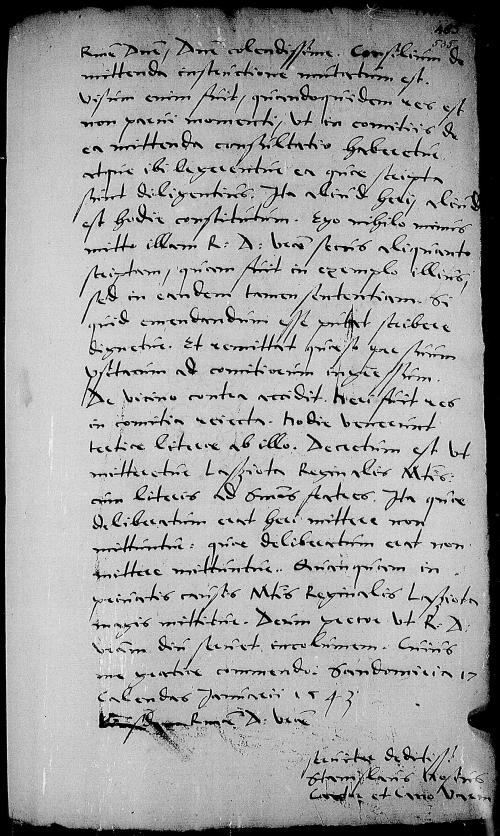 465
535
Rme Dne, Dne colendissime. Consilium de
mittenda instructione mutatum est.
Visum enim fuit, quandoquidem res est
non parvi momenti, ut in comitiis de
ea mittenda consultatio haberetur,
atque ibi legerentur ea quae scripta
sunt diligentius. Ita aliud heri, aliud
est hodie constitutum. Ego nihilo minus
mitto illam R: D: Vrae secus aliquanto
scriptam, quam fuit in exemplo illius,
sed in eandem tamen sententiam. Si
quid emendandum esse putat scribere
dignetur. Et remittat quaeso per suum
ad comitiorum ingressum.
De vicino contra accidit. Heri fuit res
in comitia reiecta. Hodie venerunt
tertiae literae ab illo. Decretum est ut
mitteretur Lassziota Reginalis Mtis:
cum literis ad Smos fratres. Ita quae
deliberatum erat heri mittere non
mittuntur: quae deliberatum erat non
mittere mittuntur. Quanquam in
privatis causis Mtis Reginalis Lassziota
magis mittitur. Deum precor ut R: D:
Vram diu servet incolumem. Cuius
me gratiae commendo. Sandomiria 17
Calendas Januarii 1543
Rmae D. Vrae
servitor dedetiss:
Stanislaus Hosius
Custos et Cano: Varm